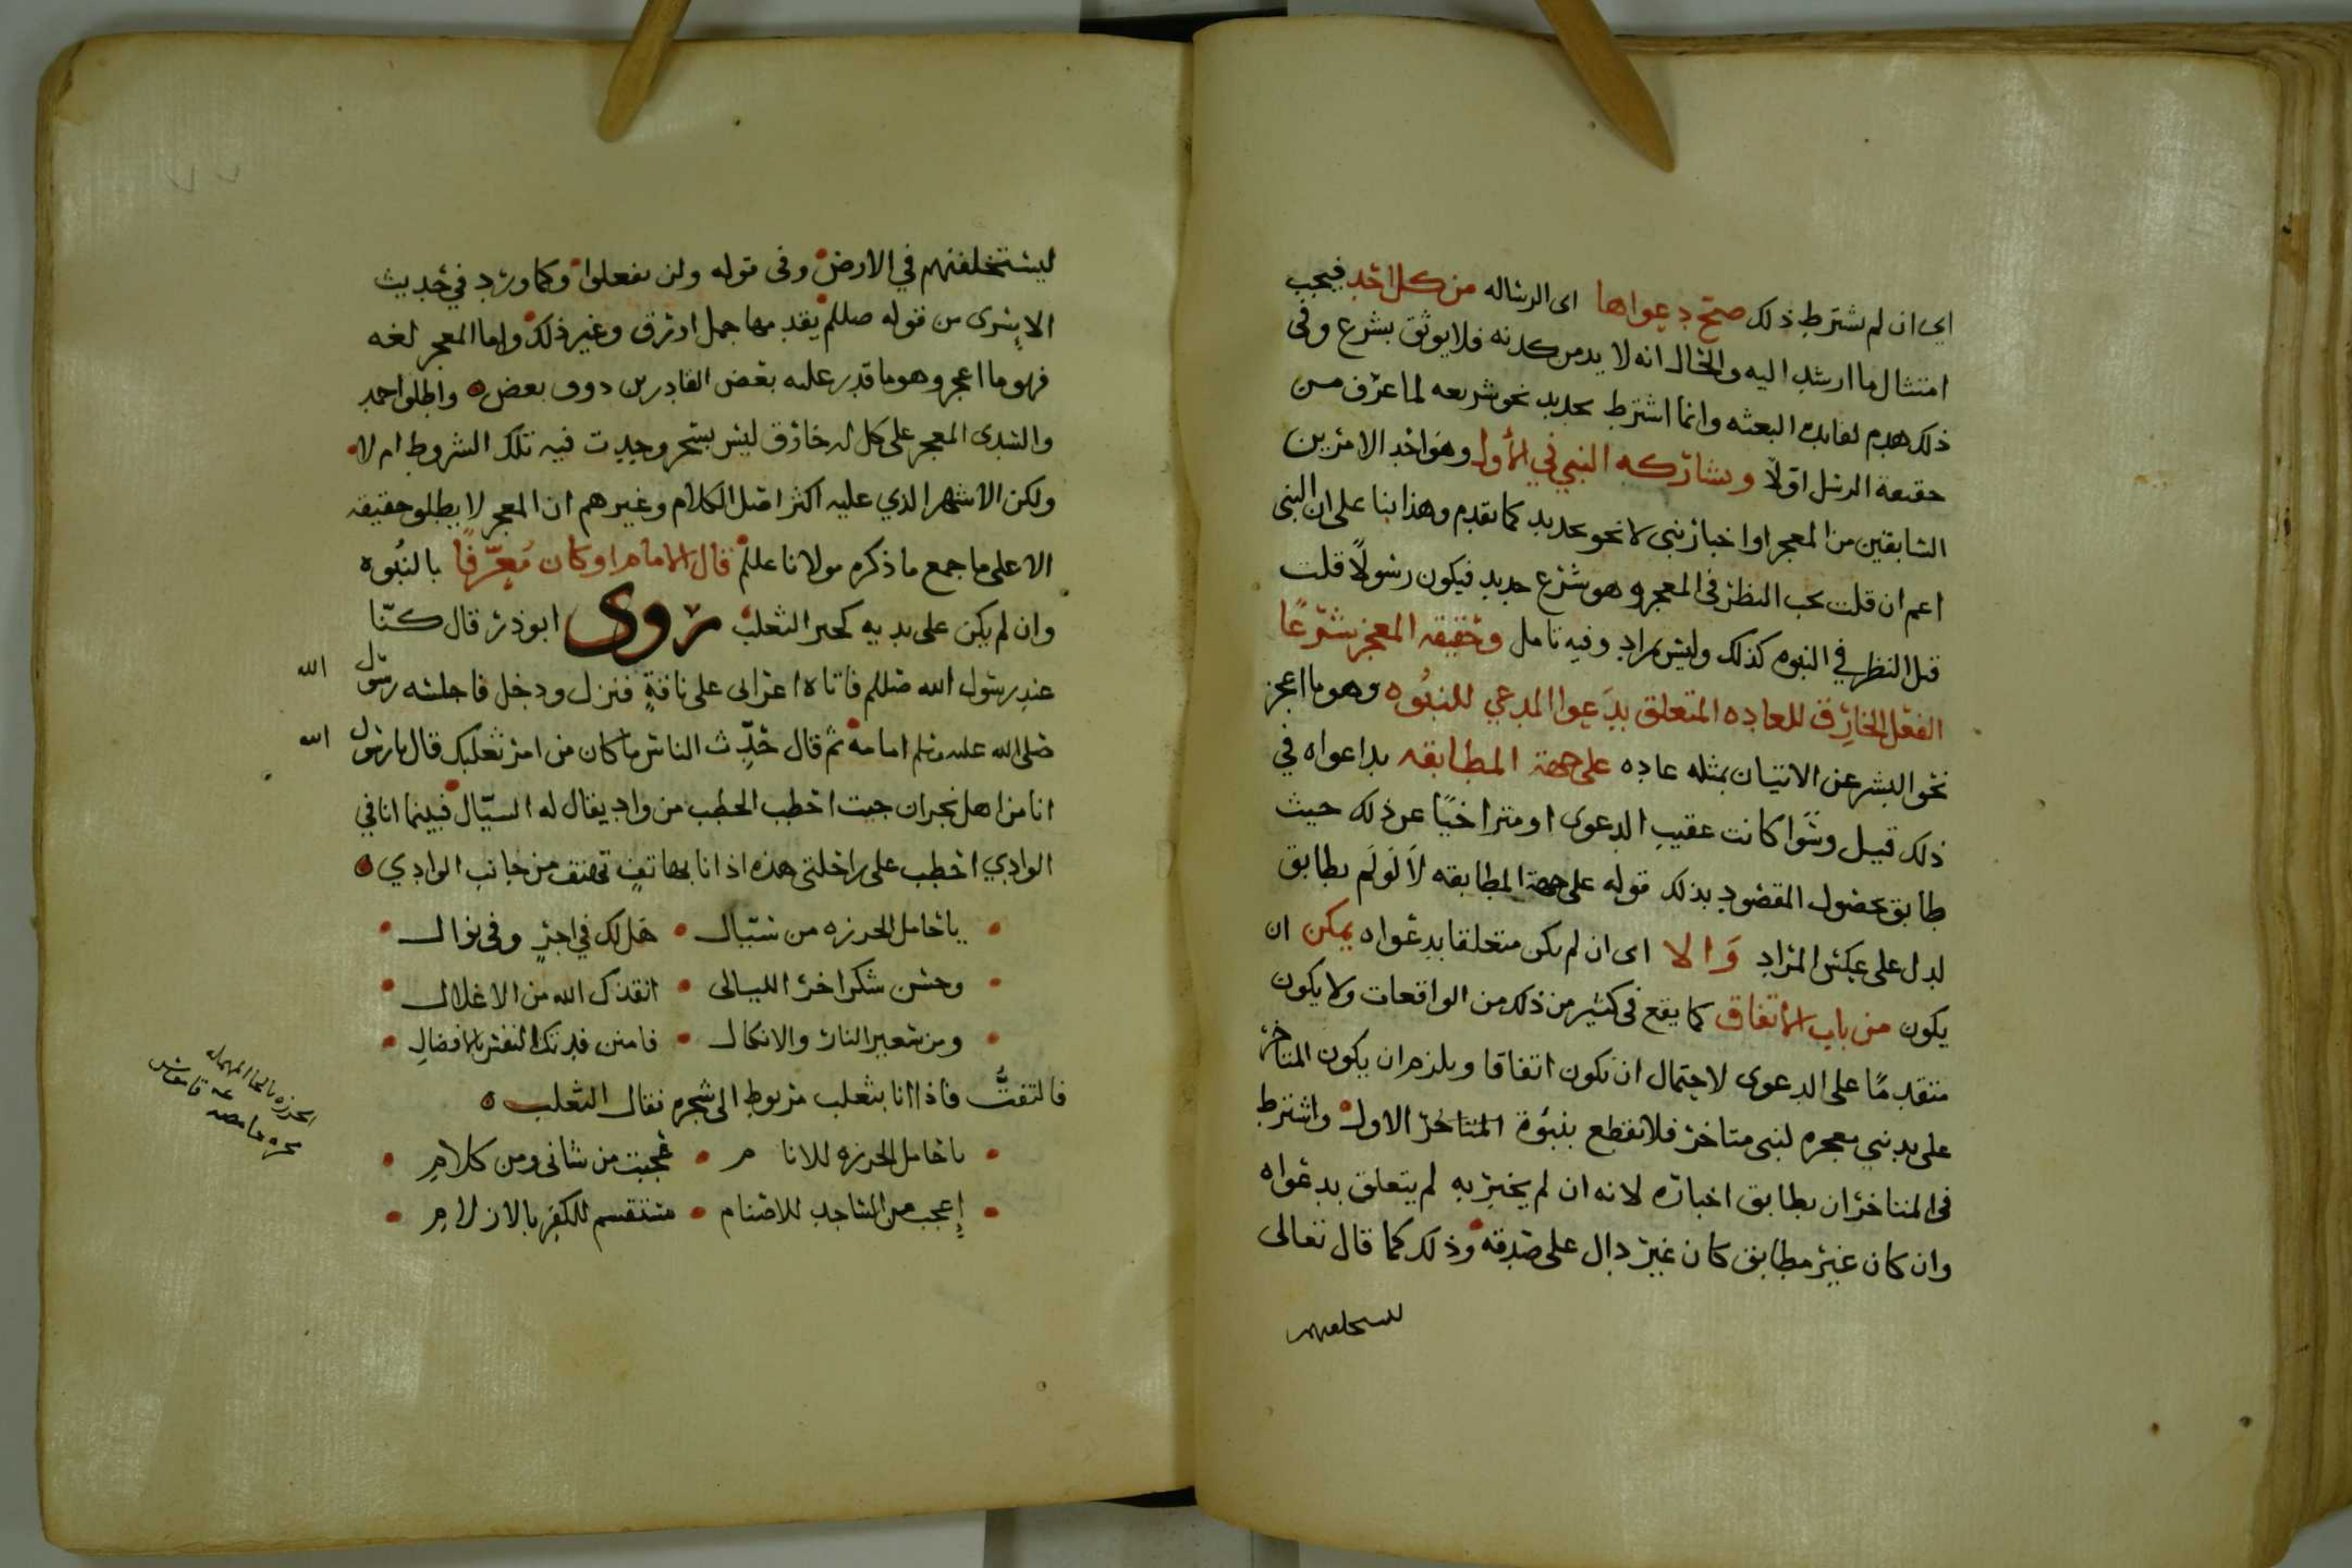 اي ان لم يشترط ذلك صح دعواها اى الرساله من كل احد فيجب
امتثال ما ارشد اليه والحال انه لا بد من كدنه فلا يوثق بشرع وفى
ذلك هدم لفايده البعثه وانما اشترط تجديد نحو شريعه لما عرف من
حقيقة الرسل اولاً ويشاركه النبي في الأول وهو احد الامرين
السابقين من المعجز او اخبار نبى لا نحو تجديد كما تقدم وهذا بنا على ان النبى
اعم ان قلت يجب النظر فى المعجز وهو شرع جديد فيكون رسولاً قلت
قبل النظر في النبوه كذلك وليس بمراد وفيه تامل وحقيقه المعجز شرعًا
الفعل الخارِق للعاده المتعلق بدَعوا المدعي للنبُوه وهو ما اعجز
نحو البشر عن الاتيان بمثله عاده على جهة المطابقه بداعواه في
ذلك قيل وسَوا كانت عقيب الدعوى او متراخيًا عن ذلك حيث
طابق بحصول المقصود بذلك قوله على جهة المطابقه لاَ لَو لَم يطابق
لدل على عكس المراد وَالا اى ان لم يكن متعلقا بدعواه يمكن ان
يكون من باب الاتفاق كما يقع فى كثير من ذلك من الواقعات ولا يكون
متقدمًا على الدعوى لاحتمال ان تكون اتفاقا ويلزم ان يكون المتاخر
على يد نبي معجره لنبى متاخر فلا نقطع بنبوة المتاخر الاول واشترط
فى المتاخر ان يطابق اخباره لانه ان لم يخبر به لم يتعلق بدعواه
وان كان غير مطابق كان غير دال على صدقه وذلك كما قال تعالى
ليستخلفنهم
ليستخلفنهم في الارض وفى قوله ولن تفعلوا وكما ورد في حديث
الاسرى من قوله صللم يقدمها جمل اورق وغير ذلك واما المعجز لغه
فهو ما اعجز وهو ما قدر عليه بعض القادرين دون بعض واطلق احمد
والسدى المعجز على كل خارق ليس بسحر وجدت فيه تلك الشروط ام لا
ولكن الاشهر الذي عليه اكثر اهل الكلام وغيرهم ان المعجز لا يطلق حقيقه
الا على ما جمع ما ذكره مولانا عللم قال الامام او كان مُعرّفًا بالنبُوه
وان لم يكن على يديه كخبر الثعلب روى ابو ذر قال كنّا
عند رسول الله صللم فاتاه اعرابى على ناقةٍ فنزل ودخل فاجلسه رسول الله
صلى الله عليه وسلم امامه ثم قال حَدِّث الناس ما كان من امر ثعلبك قال يارسول الله
انا من اهل نجران جيت احطب الحطب من وادٍ يقال له السيّال فبينما انا في
الوادي احطب على راحلتى هذه اذ انا بهاتفٍ تهتف من جانب الوادي
ياحامل الحرزه من سيال هل لك في اجرٍ وفى نوال
وحسن شكر اخر الليالى انقذك الله من الاغلال
ومن سعير النار والانكال فامنن فدتك النفس بالافضالِ
فالتفتُّ فاذا انا بثعلب مربوط الى شجره فقال الثعلب
ياحامل الحرزه للانام عجبت من شانى ومن كلامِ
إعجب من الساجد للاصنام مستقسم للكفر بالازلامِ
الحرزه بالحا المهمله